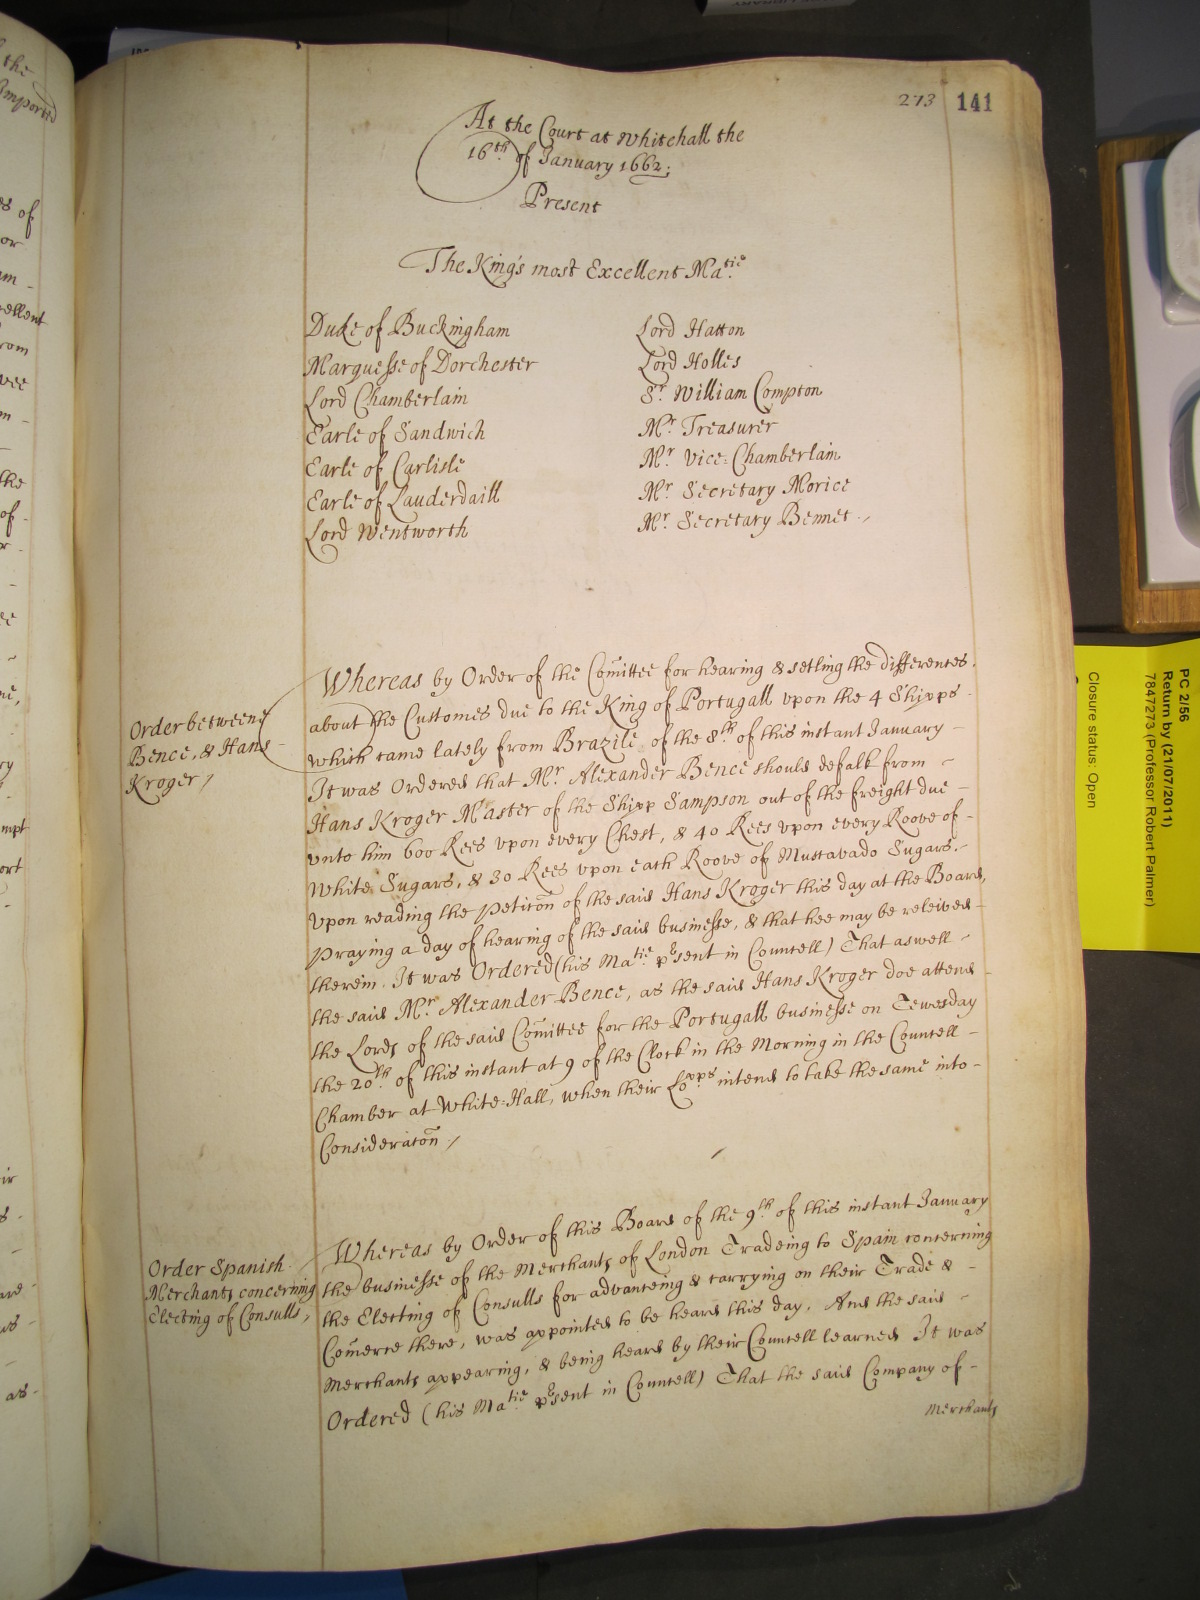 273 141
At the Court at Whitehall the
16th of January 1662;
Present
The King's most Excellent Matie.
Duke of Buckingham
Marquesse of Dorchester
Lord Chamberlain
Earle of Sandwich
Earle of Carlisle
Earle of Lauderdaill
Lord Wentworth
Lord Hatton
Lord Holles
Sr. William Compton
Mr. Treasurer
Mr. Vice-Chamberlain
Mr. Secretary Morice
Mr. Secretary Bennet
Order betweene
Bence, & Hans
Kroger /
Whereas by Order of the Comittee for hearing & setling the differences
about the Customes due to the King of Portugall upon the 4 Shipps
which came lately from Brazile of the 8th of this instant January
It was Ordered that Mr. Alexander Bence should defalk from
Hans Kroger Master of the Shipp Sampson out of the freight due
unto him 600 Rees upon every Chest, & 40 Rees upon every Roove of
White Sugars, & 30 Rees upon each Roove of Muscavado Sugars.
Upon reading the Peticon of the said Hans Kroger this day at the Board,
praying a day of hearing of the said businesse, & that hee may be releived
therein. It was Ordered (his Matie. psent in Councell) That aswell
the said Mr. Alexander Bence, as the said Hans Kroger doe attend
the Lords of the said Comittee for the Portugall businesse on Tewesday
the 20th. of this instant at 9 of the Clock in the Morning in the Councell
Chamber at White-Hall, when their Lopps intend to take the same into
Consideracon /
Order Spanish
Merchants concerning
Electing of Consulls,
Whereas by Order of this Board of the 9th of this instant January
the businesse of the Merchants of London Tradeing to Spain concerning
the Electing of Consulls for advanceing & carrying on their Trade &
Comerce there, was appointed to be heard this day. And the said
Merchants appearing, & being heard by their Councell learned It was
Ordered (his Matie psent in Councell) That the said Company of
Merchants
PC 2/56
Return by (21/07/2011)
7847273 (Professor Robert Palmer)
Closure status: Open